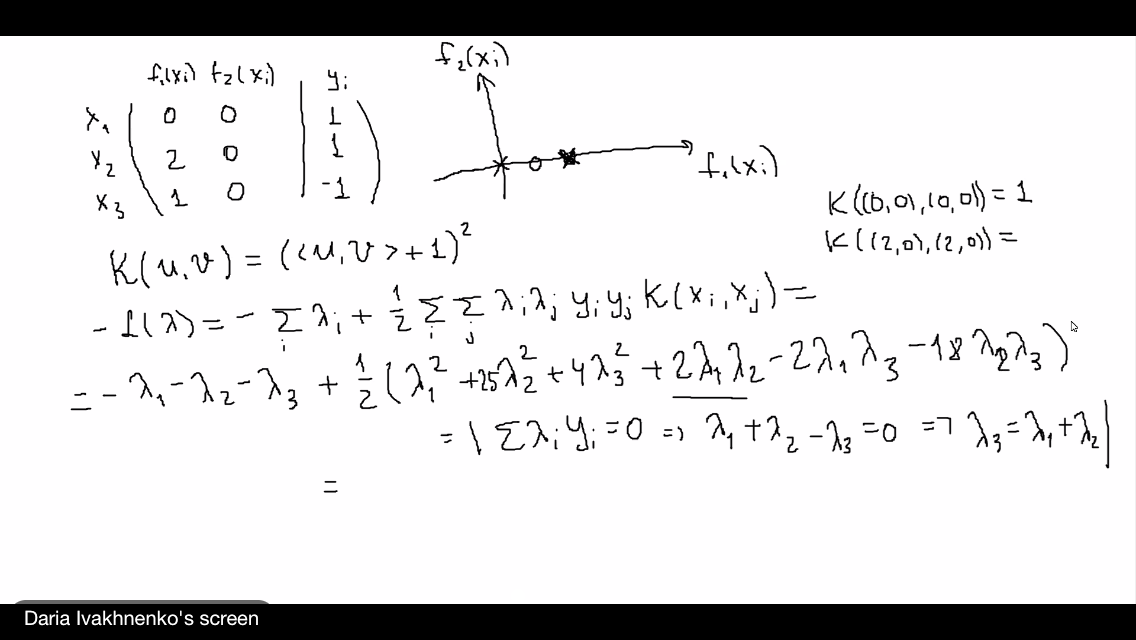 f₁(xᵢ) f₂(xᵢ) | yᵢ
x₁ 0 0 | 1
x₂ 2 0 | 1
x₃ 1 0 | -1
f₂(xᵢ)
f₁(xᵢ)
K((0,0),(0,0)) = 1
K((2,0),(2,0)) =
K(u,v) = (<u,v>+1)²
- L(λ) = - Σᵢ λᵢ + 1/2 Σᵢ Σⱼ λᵢλⱼ yᵢyⱼ K(xᵢ,xⱼ) =
= - λ₁ - λ₂ - λ₃ + 1/2 (λ₁² + 25λ₂² + 4λ₃² + 2λ₁λ₂ - 2λ₁λ₃ - 18λ₂λ₃)
= | Σλᵢyᵢ = 0 => λ₁ + λ₂ - λ₃ = 0 => λ₃ = λ₁ + λ₂ |
=
Daria Ivakhnenko's screen